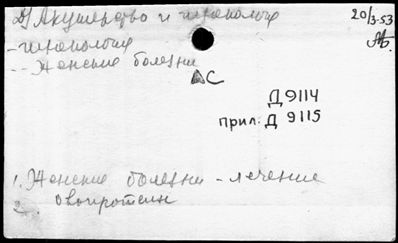 Д) Акушерство и гинекология
20/3-53
- гинекология
-- Женские болезни
АС
Д 9114
прил: Д 9115
1. Женские болезни - лечение
2. Овопротеин